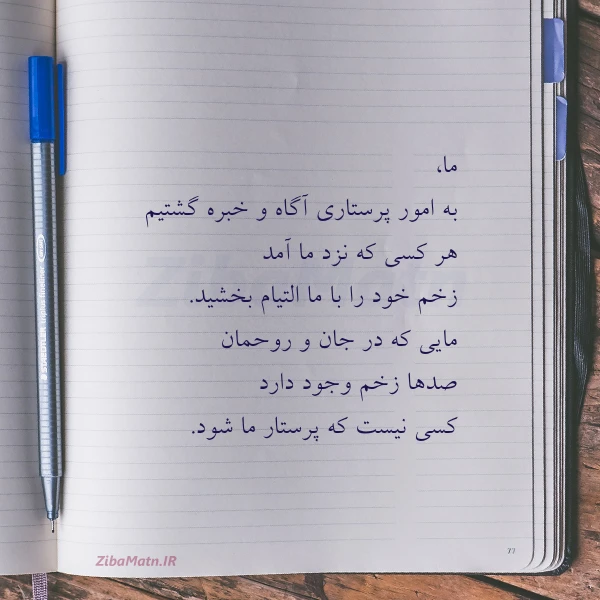 ما،
به امور پرستاری آگاه و خبره گشتیم
هر کسی که نزد ما آمد
زخم خود را با ما التیام بخشید.
مایی که در جان و روحمان
صدها زخم وجود دارد
کسی نیست که پرستار ما شود.
77
ZibaMatn.IR